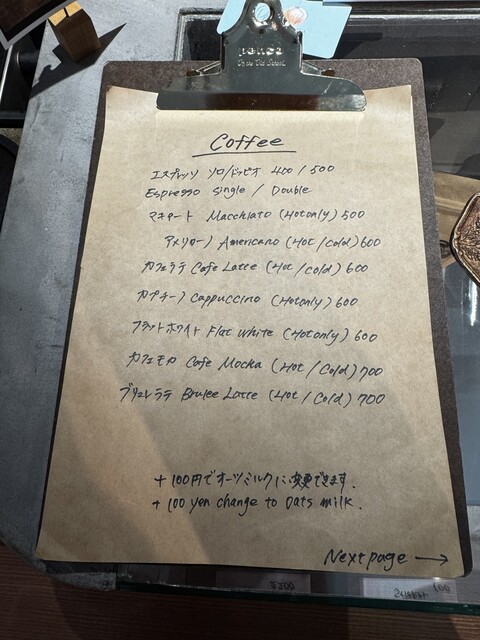 penco
Coffee
エスプレッソ ソロ/ドッピオ 400 / 500
Espresso Single / Double
マキアート Macchiato (Hot only) 500
アメリカーノ Americano (Hot / Cold) 600
カフェラテ Cafe Latte (Hot / Cold) 600
カプチーノ Cappuccino (Hot only) 600
フラットホワイト Flat White (Hot only) 600
カフェモカ Cafe Mocha (Hot / Cold) 700
ブリュレラテ Brulee Latte (Hot / Cold) 700
+ 100円でオーツミルクに変更できます.
+ 100 yen change to Oats milk.
Next page →